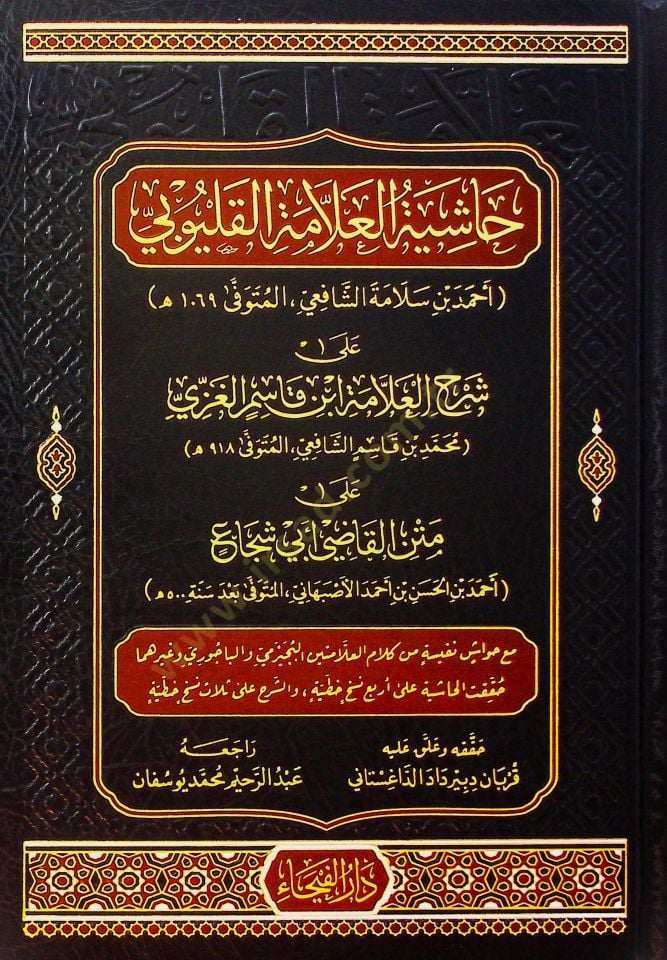 حَاشِيَةُ العَلَّامَةِ القَلْيُوبِيِّ
(أَحْمَدَ بْنِ سَلَامَةَ الشَّافِعِيِّ، المُتَوَفَّى ١٠٦٩ هـ)
عَلَى
شَرْحِ العَلَّامَةِ ابْنِ قَاسِمٍ الغَزِّيِّ
(مُحَمَّدِ بْنِ قَاسِمٍ الشَّافِعِيِّ، المُتَوَفَّى ٩١٨ هـ)
عَلَى
مَتْنِ القَاضِي أَبِي شُجَاعٍ
(أَحْمَدَ بْنِ الحَسَنِ بْنِ أَحْمَدَ الأَصْبَهَانِيِّ، المُتَوَفَّى بَعْدَ سَنَةِ ٥٠٠ هـ)
مع حواشٍ نفيسةٍ من كلام العلَّامتين البُجَيْرَمي والباجوري وغيرهما
حُقِّقت الحاشية على أربع نسخٍ خطِّيَّةٍ، والشَّرح على ثلاث نسخٍ خطِّيَّةٍ
حقَّقه وعلَّق عليه
قُرْبَان دِبِير دَادَا الدَّاغِسْتَانِي
رَاجَعَهُ
عَبْدُ الرَّحِيم مُحَمَّد يُوسُفَان
دَارُ الفَيْحَاءِ